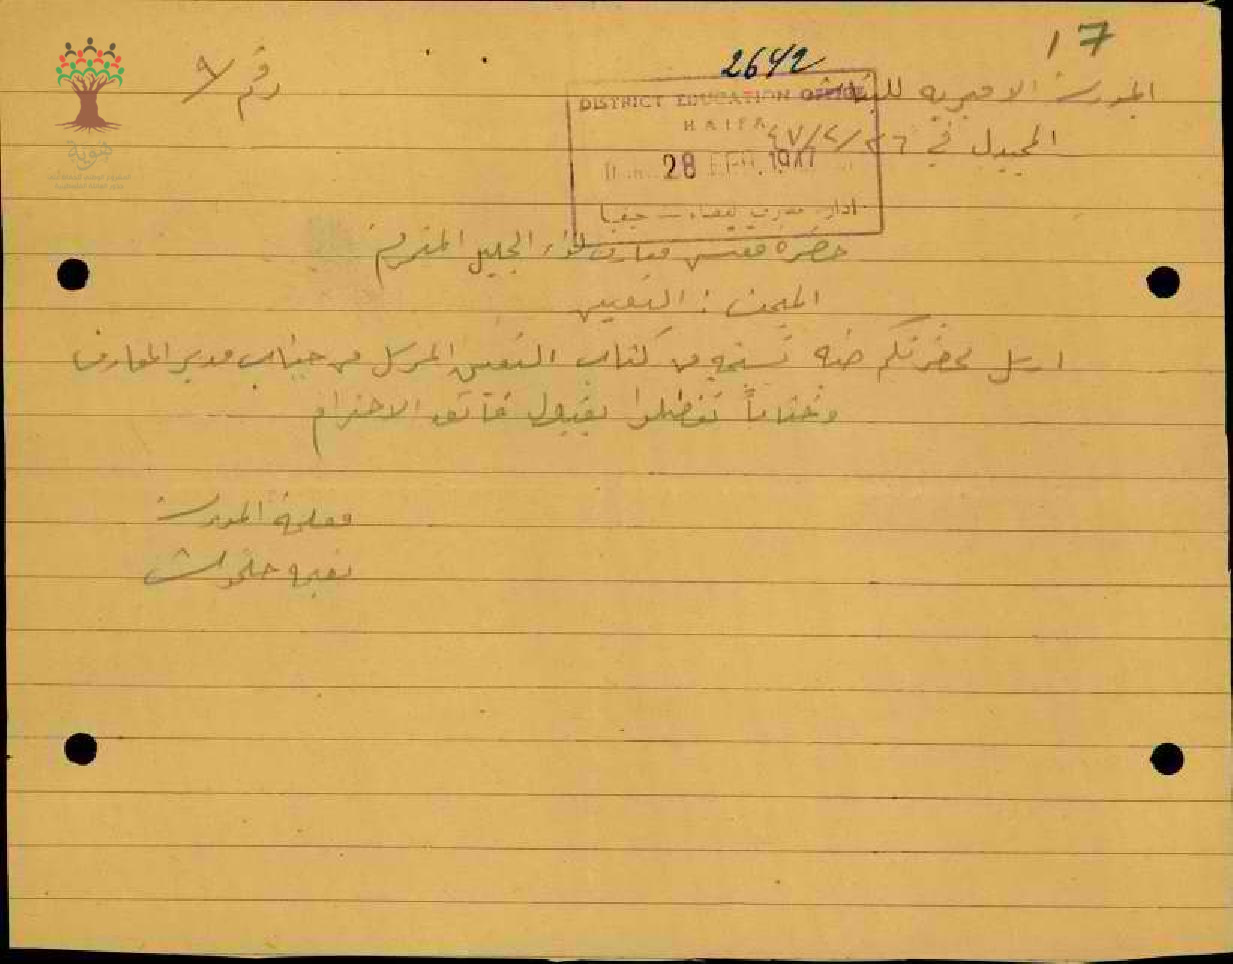 17
2642
رقم ٩/
المدرسة الاميرية للبنات
DISTRICT EDUCATION OFFICE
HAIFA
المجيدل في ٢٦/٢/٤٧
28 FEB. 1947
ادارة معارف لواء حيفا
حضرة مفتش معارف لواء الجليل المحترم
المبحث : التعيين
ارسل لحضرتكم ضمنه نسخه من كتاب التعيين المرسل من جناب مدير المعارف
وختاماً تفضلوا بقبول فائق الاحترام
معلمة المدرسة
هوية